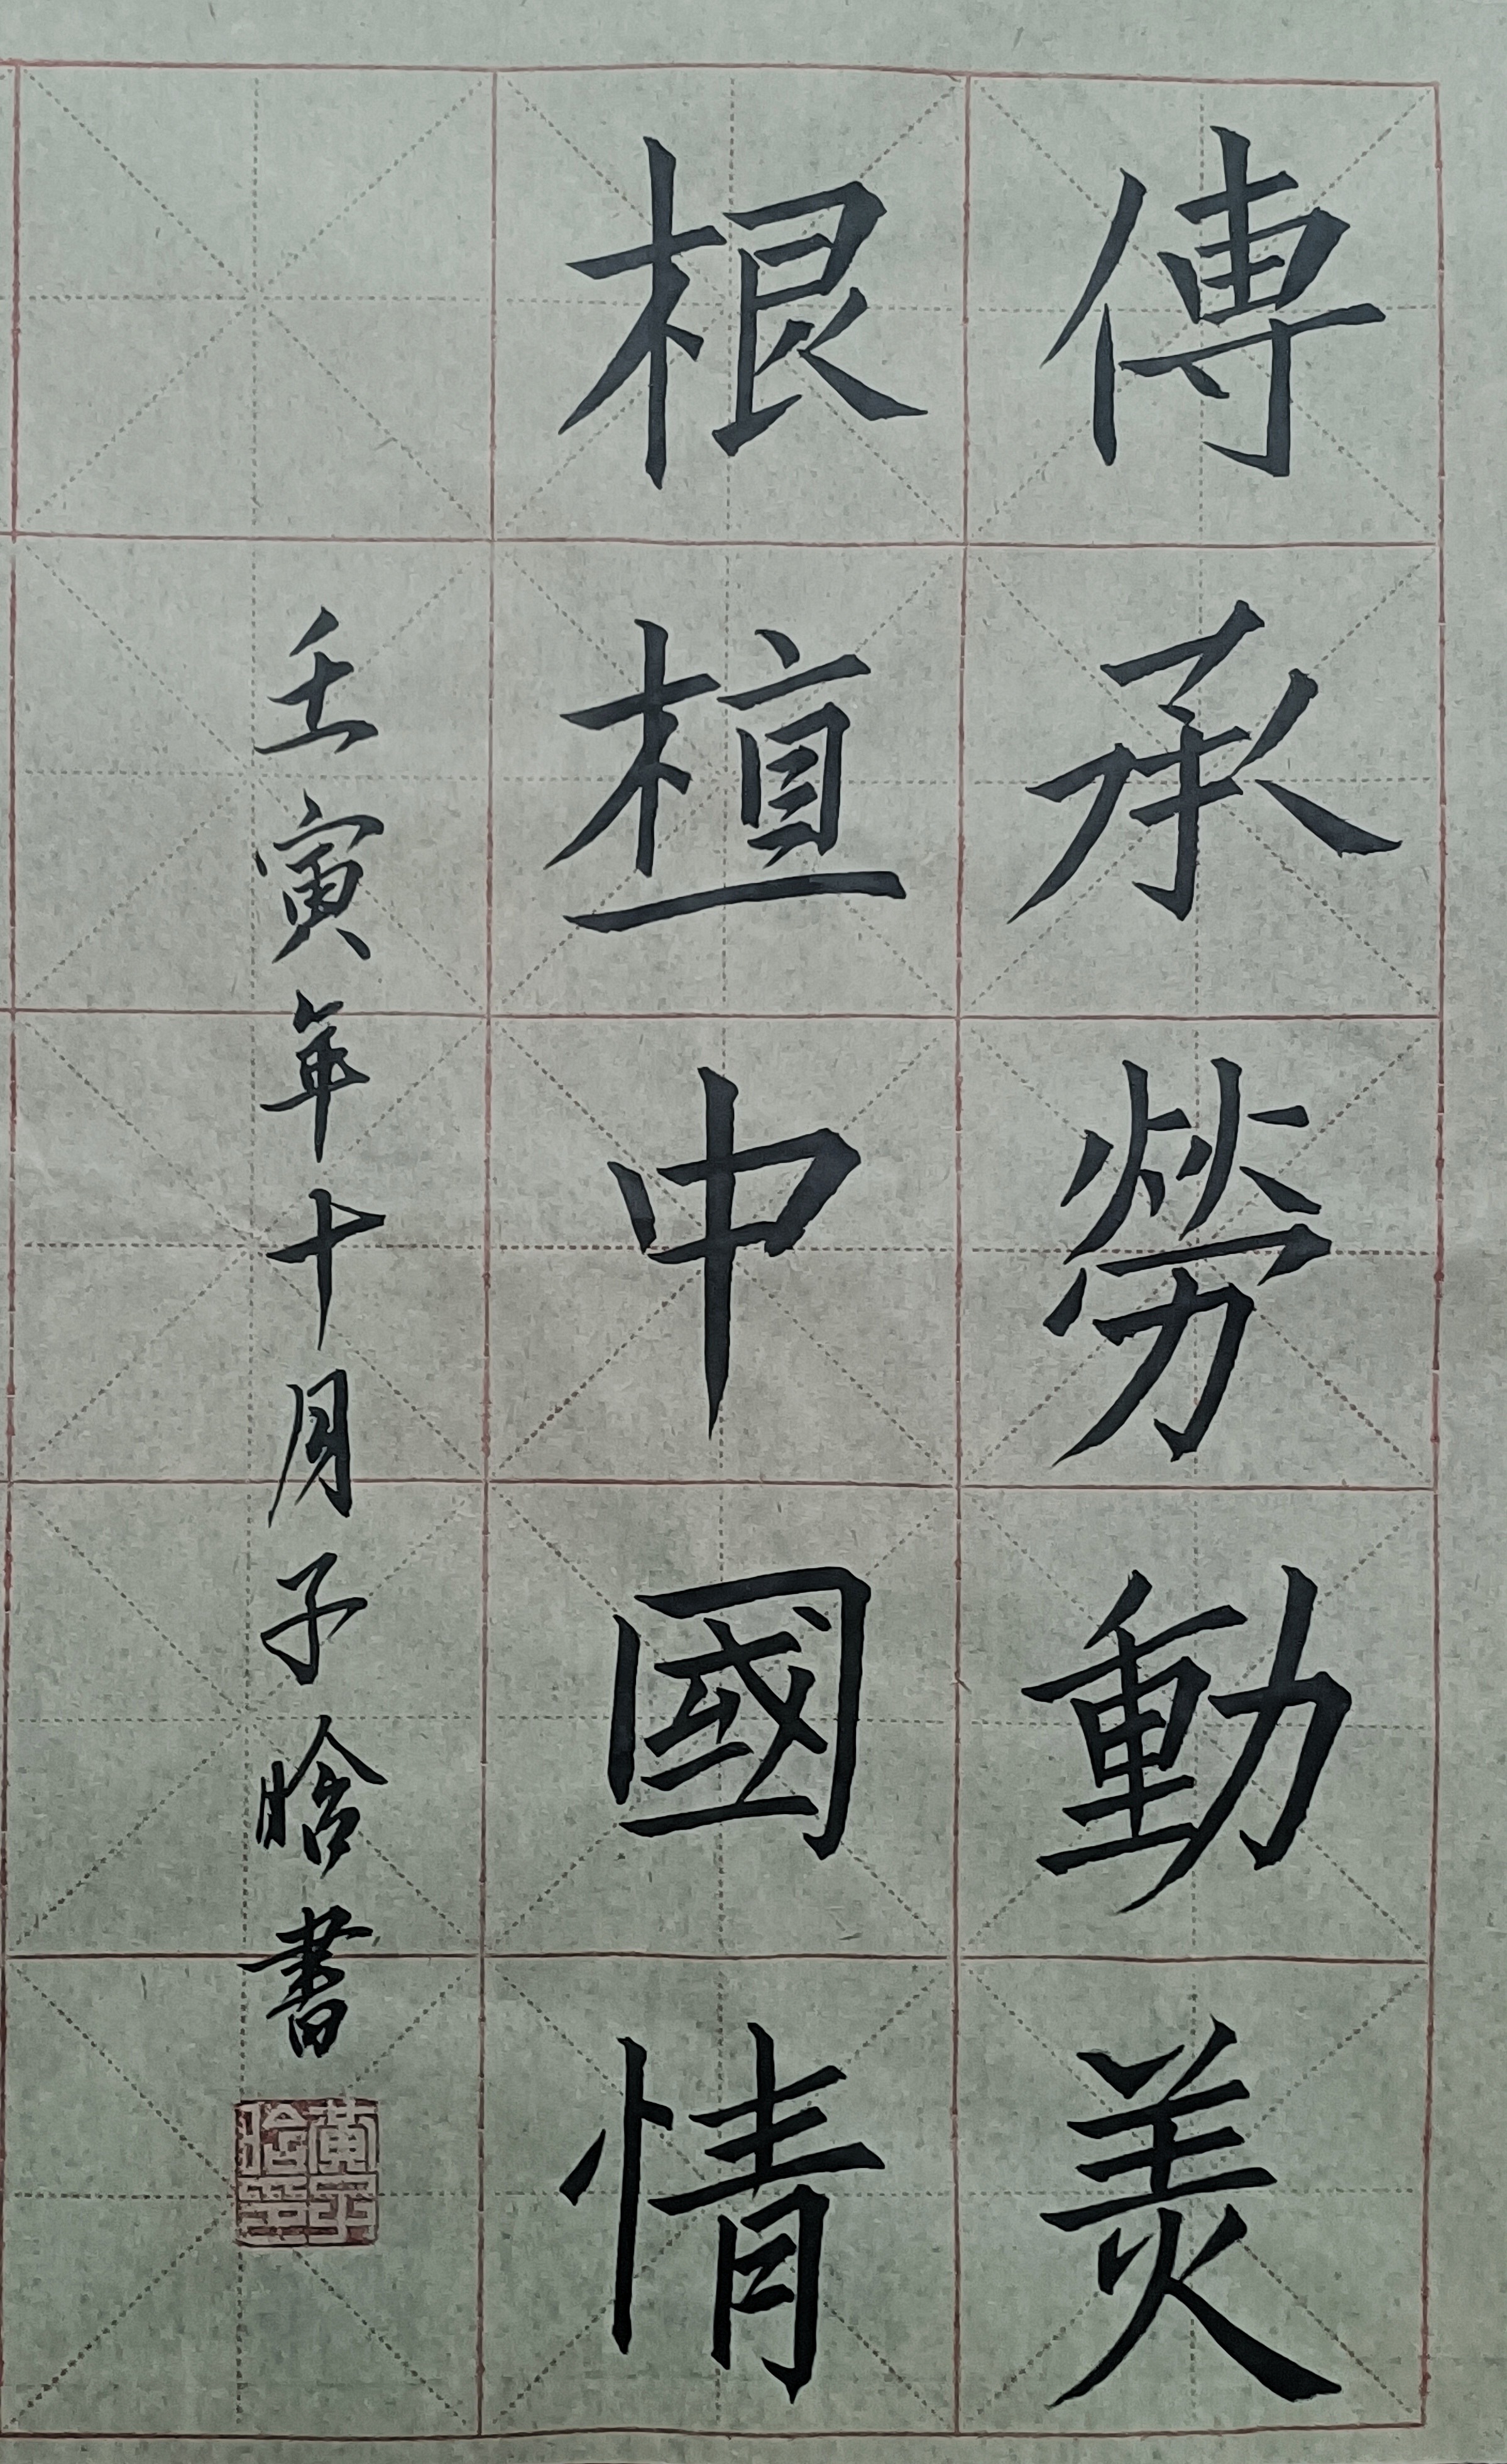 傳承勞動美
根植中國情
壬寅年十月子晗書